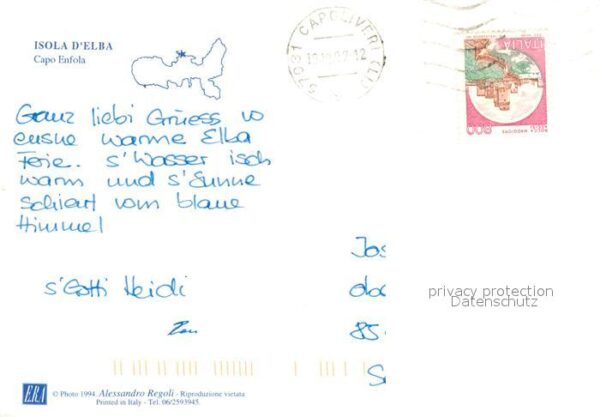 ISOLA D'ELBA
Capo Enfola
Ganz liebi Grüess vo
eusne warme Elba
Ferie. s'Wasser isch
warm und s'Sunne
schient vom blaue
Himmel
s'Gotti Heidi
57031 CAPOLIVERI (LI)
ITALIA
800
Jos
doc
85
S
privacy protection
Datenschutz
ERA
© Photo 1994 Alessandro Regoli - Riproduzione vietata
Printed in Italy - Tel. 06/2593945